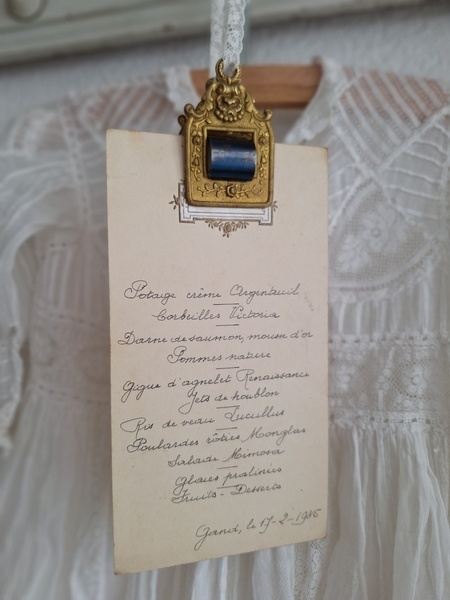 Potage crème Argenteuil
Corbeilles Victoria
Darne de saumon, mousse d'or
Pommes nature
Gigue d'agnelet Renaissance
Jets de houblon
Ris de veau Lucullus
Poulardes rôties Monglas
Salade Mimosa
Glaces pralinées
Fruits - Desserts
Gand, le 17-2-1945